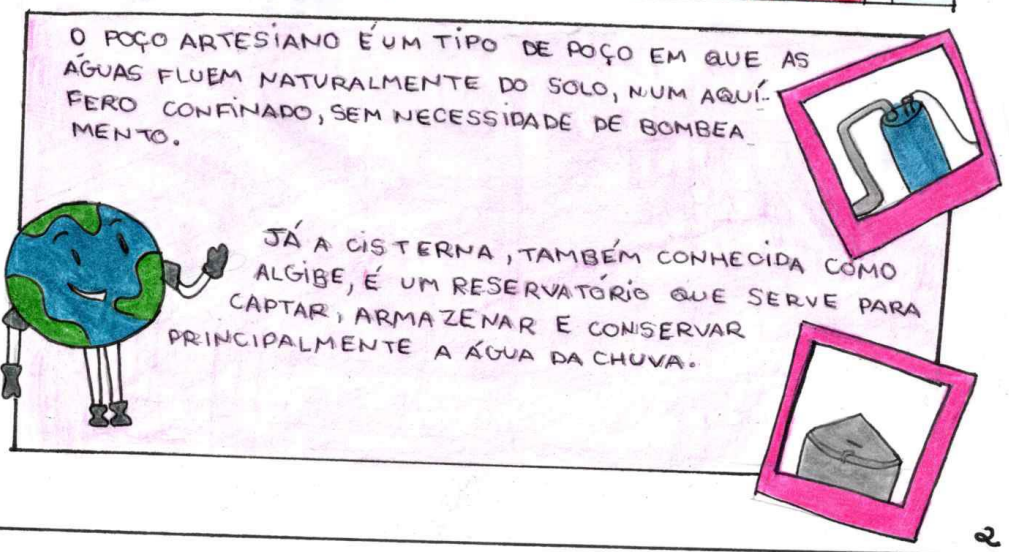 O POÇO ARTESIANO É UM TIPO DE POÇO EM QUE AS
ÁGUAS FLUEM NATURALMENTE DO SOLO, NUM AQUÍ-
FERO CONFINADO, SEM NECESSIDADE DE BOMBEA
MENTO.
JÁ A CISTERNA, TAMBÉM CONHECIDA COMO
ALGIBE, É UM RESERVATÓRIO QUE SERVE PARA
CAPTAR, ARMAZENAR E CONSERVAR
PRINCIPALMENTE A ÁGUA DA CHUVA.
2